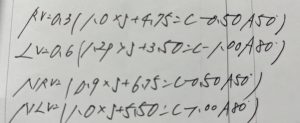 RV=0.3(1.0×S+4.75=C-0.50A50°)
LV=0.6(1.2q×S+3.50=C-1.00A80°)
NRV=(0.9×S+6.75=C-0.50A50°)
NLV=(1.0×S+5.50=C-1.00A80°)